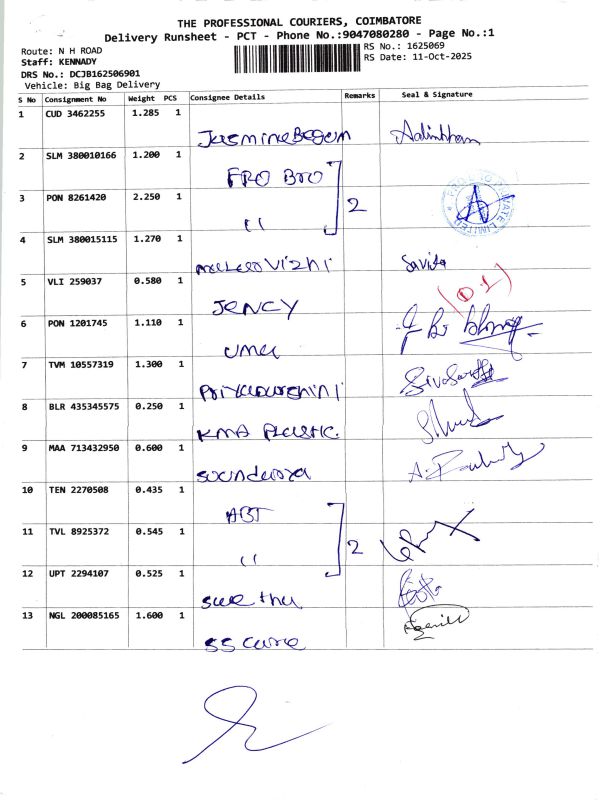 THE PROFESSIONAL COURIERS, COIMBATORE
Delivery Runsheet - PCT - Phone No.:9047080280 - Page No.:1
Route: N H ROAD
RS No.: 1625069
Staff: KENNADY
RS Date: 11-Oct-2025
DRS No.: DCJB162506901
Vehicle: Big Bag Delivery
S No Consignment No Weight PCS Consignee Details Remarks Seal & Signature
1 CUD 3462255 1.285 1
Jasmine Begam
2 SLM 380010166 1.200 1
FRO BRO
2
3 PON 8261420 2.250 1
"
4 SLM 380015115 1.270 1
Savita
5 VLI 259037 0.580 1
JENCY
6 PON 1201745 1.110 1
uma
7 TVM 10557319 1.300 1
Priyadharshini
8 BLR 435345575 0.250 1
KMA Plastic.
9 MAA 713432950 0.600 1
10 TEN 2270508 0.435 1
ABT
2
11 TVL 8925372 0.545 1
"
12 UPT 2294107 0.525 1
swetha
13 NGL 200085165 1.600 1
SS Care